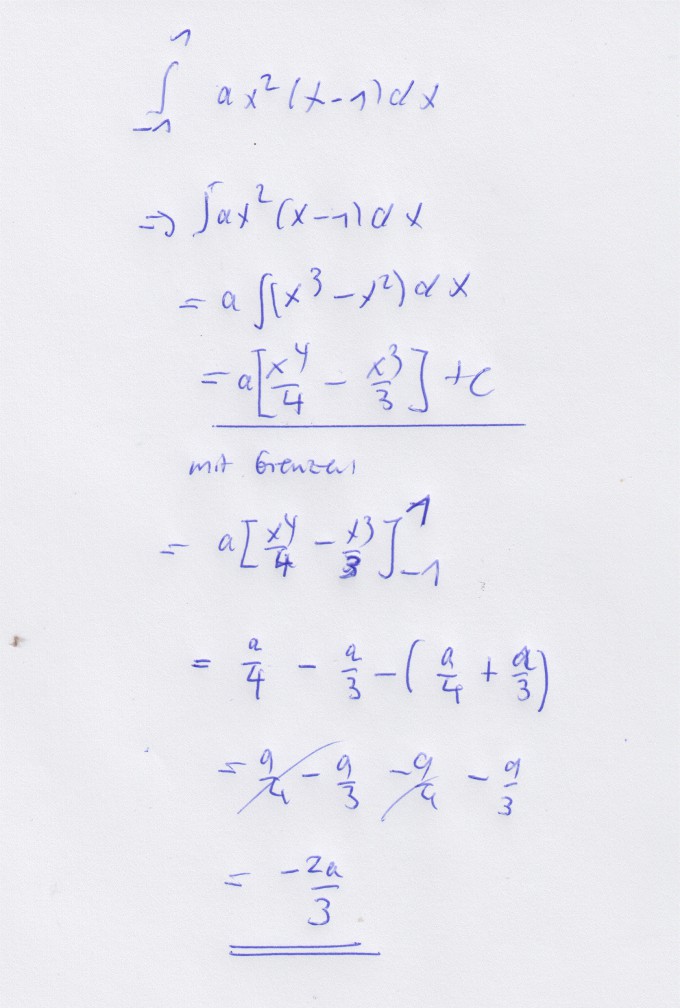 ∫₋₁¹ ax²(x-1)dx
⇒ ∫ax²(x-1)dx
= a∫(x³-x²)dx
= a[x⁴/4 - x³/3] + C
mit Grenzen
= a[x⁴/4 - x³/3]₋₁¹
= a/4 - a/3 - (a/4 + a/3)
= a/4 - a/3 - a/4 - a/3
= -2a/3